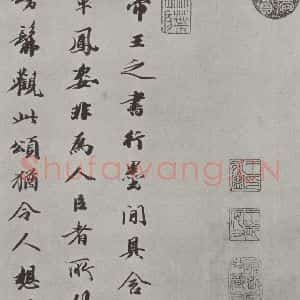 帝王之書行墨間具含
鳳姿非為人臣者所
髴觀此頌猶令人想
Shufawang.CN